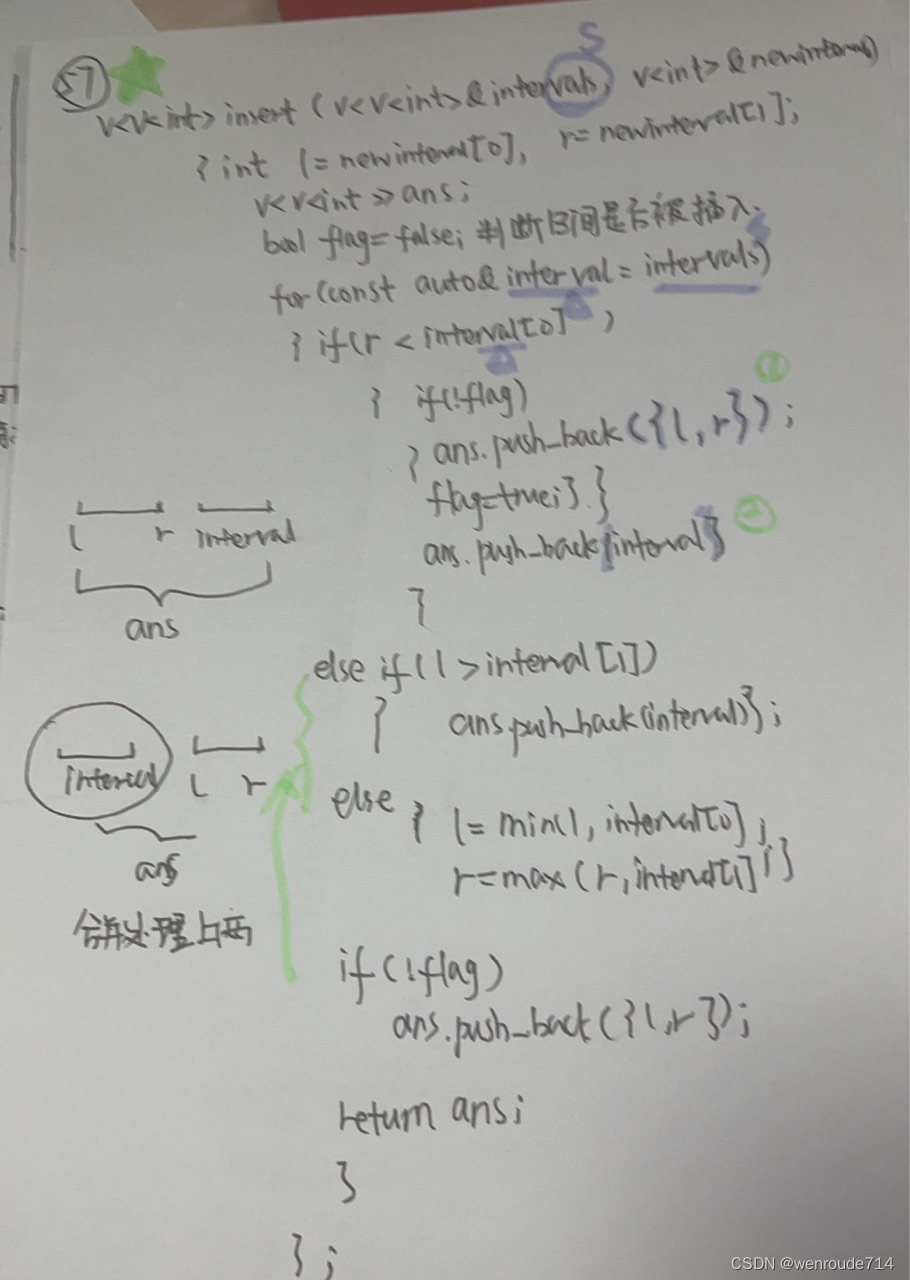 57
S
v<v<int> insert (v<v<int>& intervals, v<int>& newinterval)
{ int l = newinterval[0], r = newinterval[1];
v<v<int>> ans;
bool flag = false; 判断区间是否被插入.
for (const auto& interval = intervals)
{ if (r < interval[0] )
{ if(!flag) ①
{ ans.push_back({l, r});
flag=true;} }
ans.push_back{interval} ②
}
l r interval
ans
else if (l > interval [1])
{ ans.push_back(interval)};
interval l r
ans
else { l = min(l, interval[0];
r = max (r, interval[1] ;}
合并处理上面
if (!flag)
ans.push_back ({l, r});
return ans;
}
};
CSDN @wenroude714